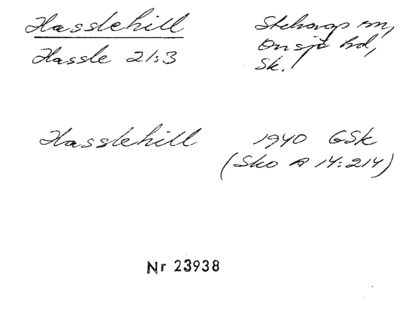 Hasslehill
Hassle 21:3
Stehags sn,
Onsjö hd,
Sk.
Hasslehill
1940 GSk
(Sko A 14:214)
Nr 23938